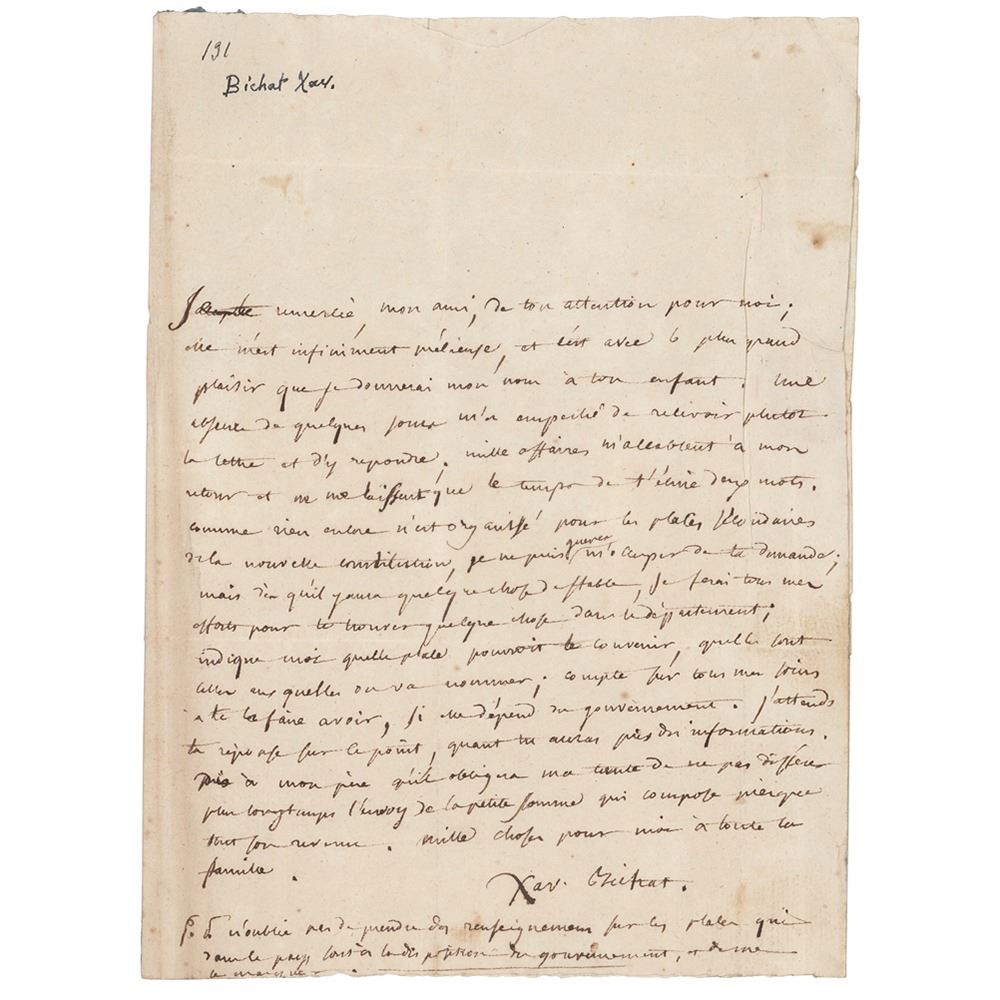 191
Bichat Xav.
remercie, mon ami, de ton attention pour moi;
elle m'est infiniment précieuse, et c'est avec le plus grand
plaisir que je donnerai mon nom à ton enfant. une
absence de quelques jours m'a empeché de recevoir plutot
ta lettre et d'y repondre. mille affaires m'accablent à mon
retour et ne me laissent que le temps de t'écrire deux mots.
comme rien encore n'est organisé pour les places secondaires
de la nouvelle constitution, je ne puis guerer m'occuper de ta demande;
mais dès qu'il y aura quelque chose de stable, je ferai tous mes
efforts pour te trouver quelque chose dans le département;
indique moi quelle place pourroit te convenir, quelles sont
celles aux quelles on va nommer; compte sur tous mes soins
à te la faire avoir, si elle dépend du gouvernement. j'attends
ta reponse sur ce point, quant tu auras pris des informations.
à mon père qu'il obligera ma tante de ne pas différer
plus longtemps l'envoy de la petite somme qui compose presque
tout son revenu. mille choses pour moi à toute la
famille.
Xav. Bichat.
p. s. n'oublie pas de prendre des renseignemens sur les places qui
dans le pays sont à la disposition du gouvernement, et de me
le marquer.